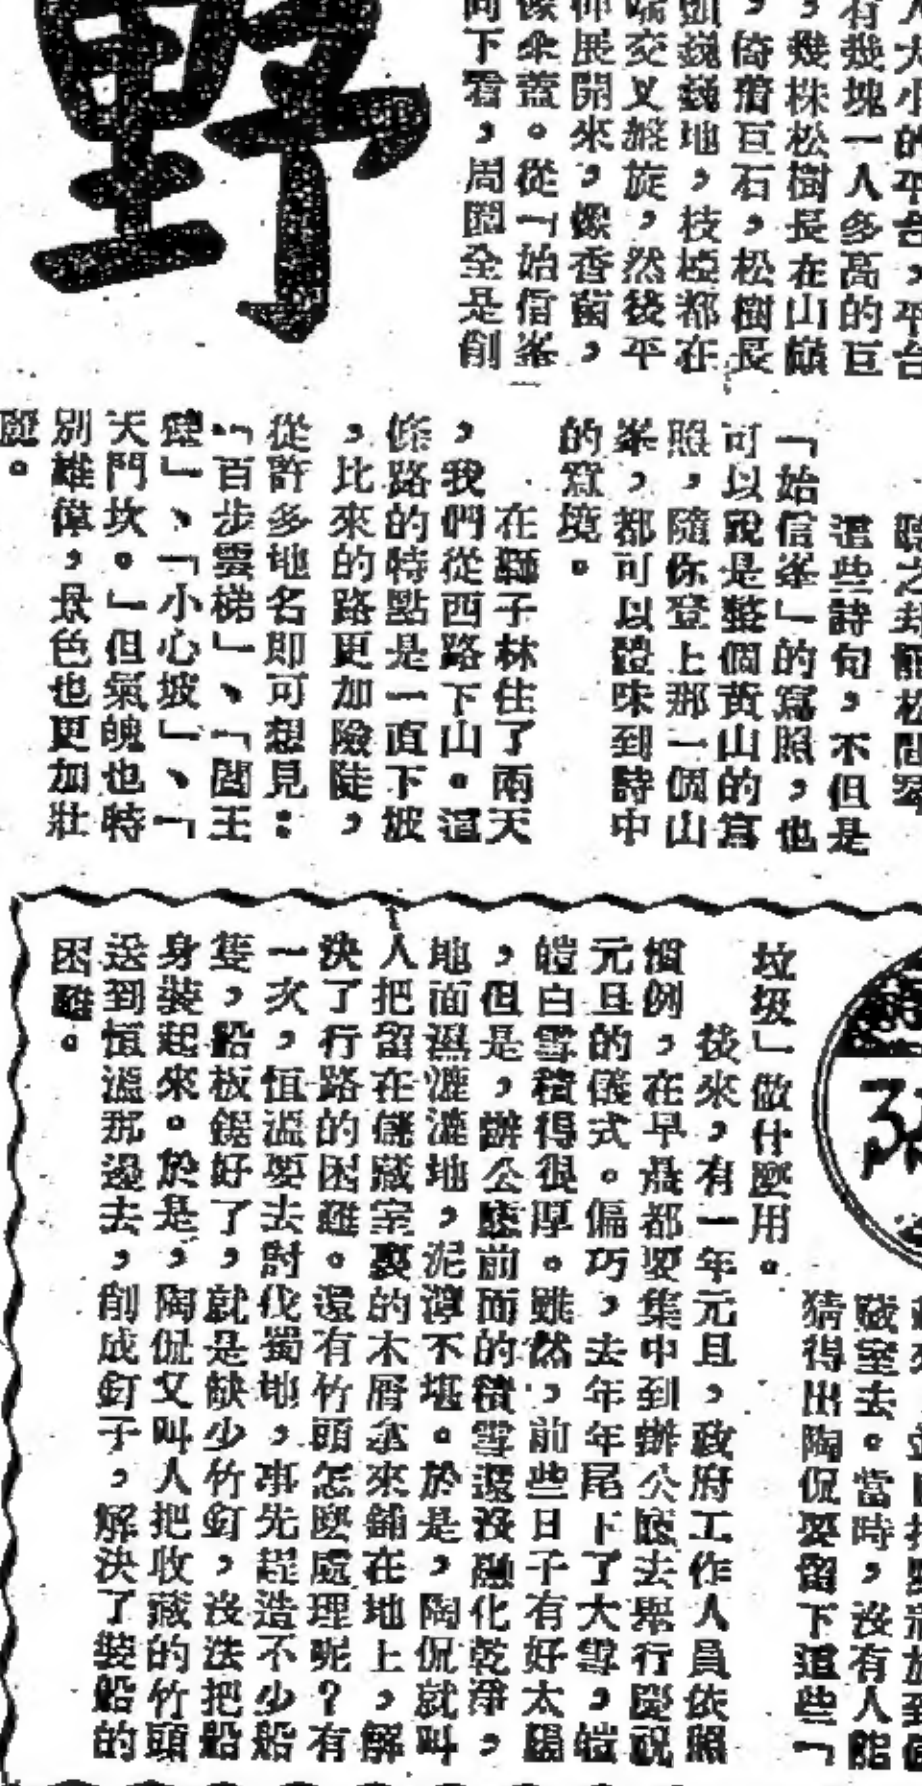 野
人大小的平台，平台
有幾塊一人多高的巨
，幾株松樹長在山巔
，倚着巨石，松樹長
頭巍巍地，枝椏都在
端交叉盤旋，然後平
伸展開來，像香菌，
像傘蓋。從「始信峯
向下看，周圍全是削
這些詩句，不但是
「始信峯」的寫照，也
可以說是整個黃山的寫
照，隨你登上那一個山
峯，都可以體味到詩中
的寫境。
在獅子林住了兩天
，我們從西路下山。這
條路的特點是一直下坡
，比來的路更加險陡，
從許多地名即可想見：
「百步雲梯」、「閻王
壁」、「小心坡」、「
天門坎。」但氣魄也特
別雄偉，景色也更加壯
麗。
藏室去。當時，沒有人能
猜得出陶侃要留下這些「
垃圾」做什麼用。
後來，有一年元旦，政府工作人員依照
慣例，在早晨都要集中到辦公廳去舉行慶祝
元旦的儀式。偏巧，去年年尾下了大雪，皚
皚白雪積得很厚。雖然，前些日子有好太陽
，但是，辦公廳前面的積雪還沒融化乾淨，
地面濕漉漉地，泥濘不堪。於是，陶侃就叫
人把留在儲藏室裏的木屑拿來鋪在地上，解
決了行路的困難。還有竹頭怎麼處理呢？有
一次，恒溫要去討伐蜀地，事先趕造不少船
隻，船板鋸好了，就是缺少竹釘，沒法把船
身裝起來。於是，陶侃又叫人把收藏的竹頭
送到恒溫那邊去，削成釘子，解決了裝船的
困難。